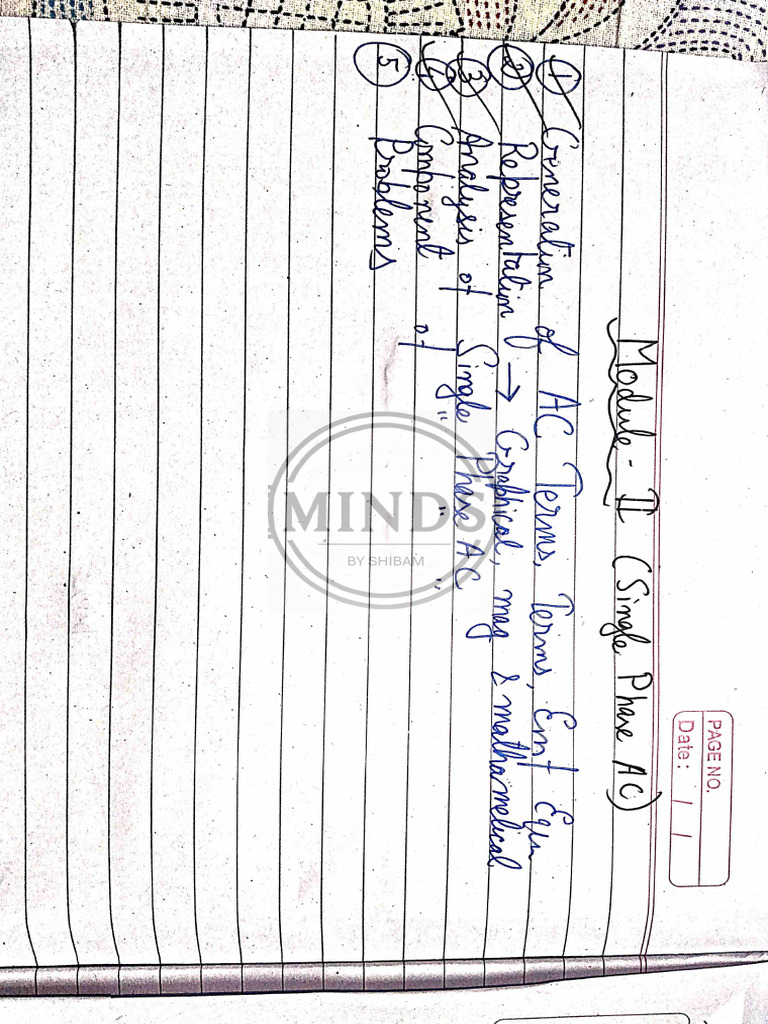 PAGE NO.
Date: / /
Module - II (Single Phase AC)
① Generation of AC Terms, Terms, Emf Equn
② Representation → Graphical, mag & mathamelical
③ Analysis of Single Phase AC
④ Component of " " "
⑤ Problems
MINDS
BY SHIBAM